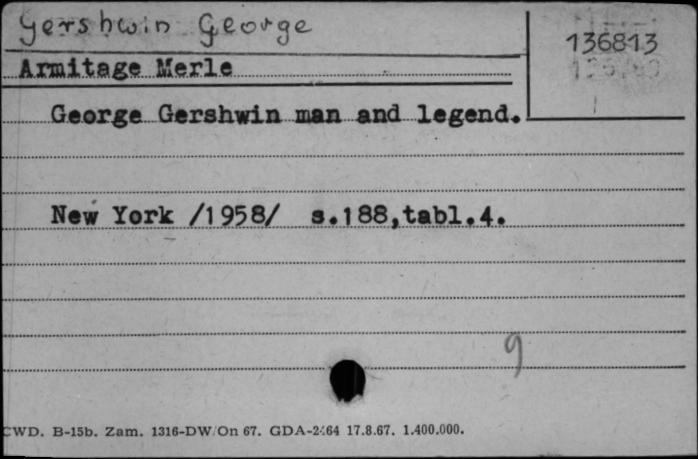 Gershwin George
136813
Armitage Merle
George Gershwin man and legend.
New York /1958/ s.188,tabl.4.
9
CWD. B-15b. Zam. 1316-DW/On 67. GDA-2464 17.8.67. 1.400.000.